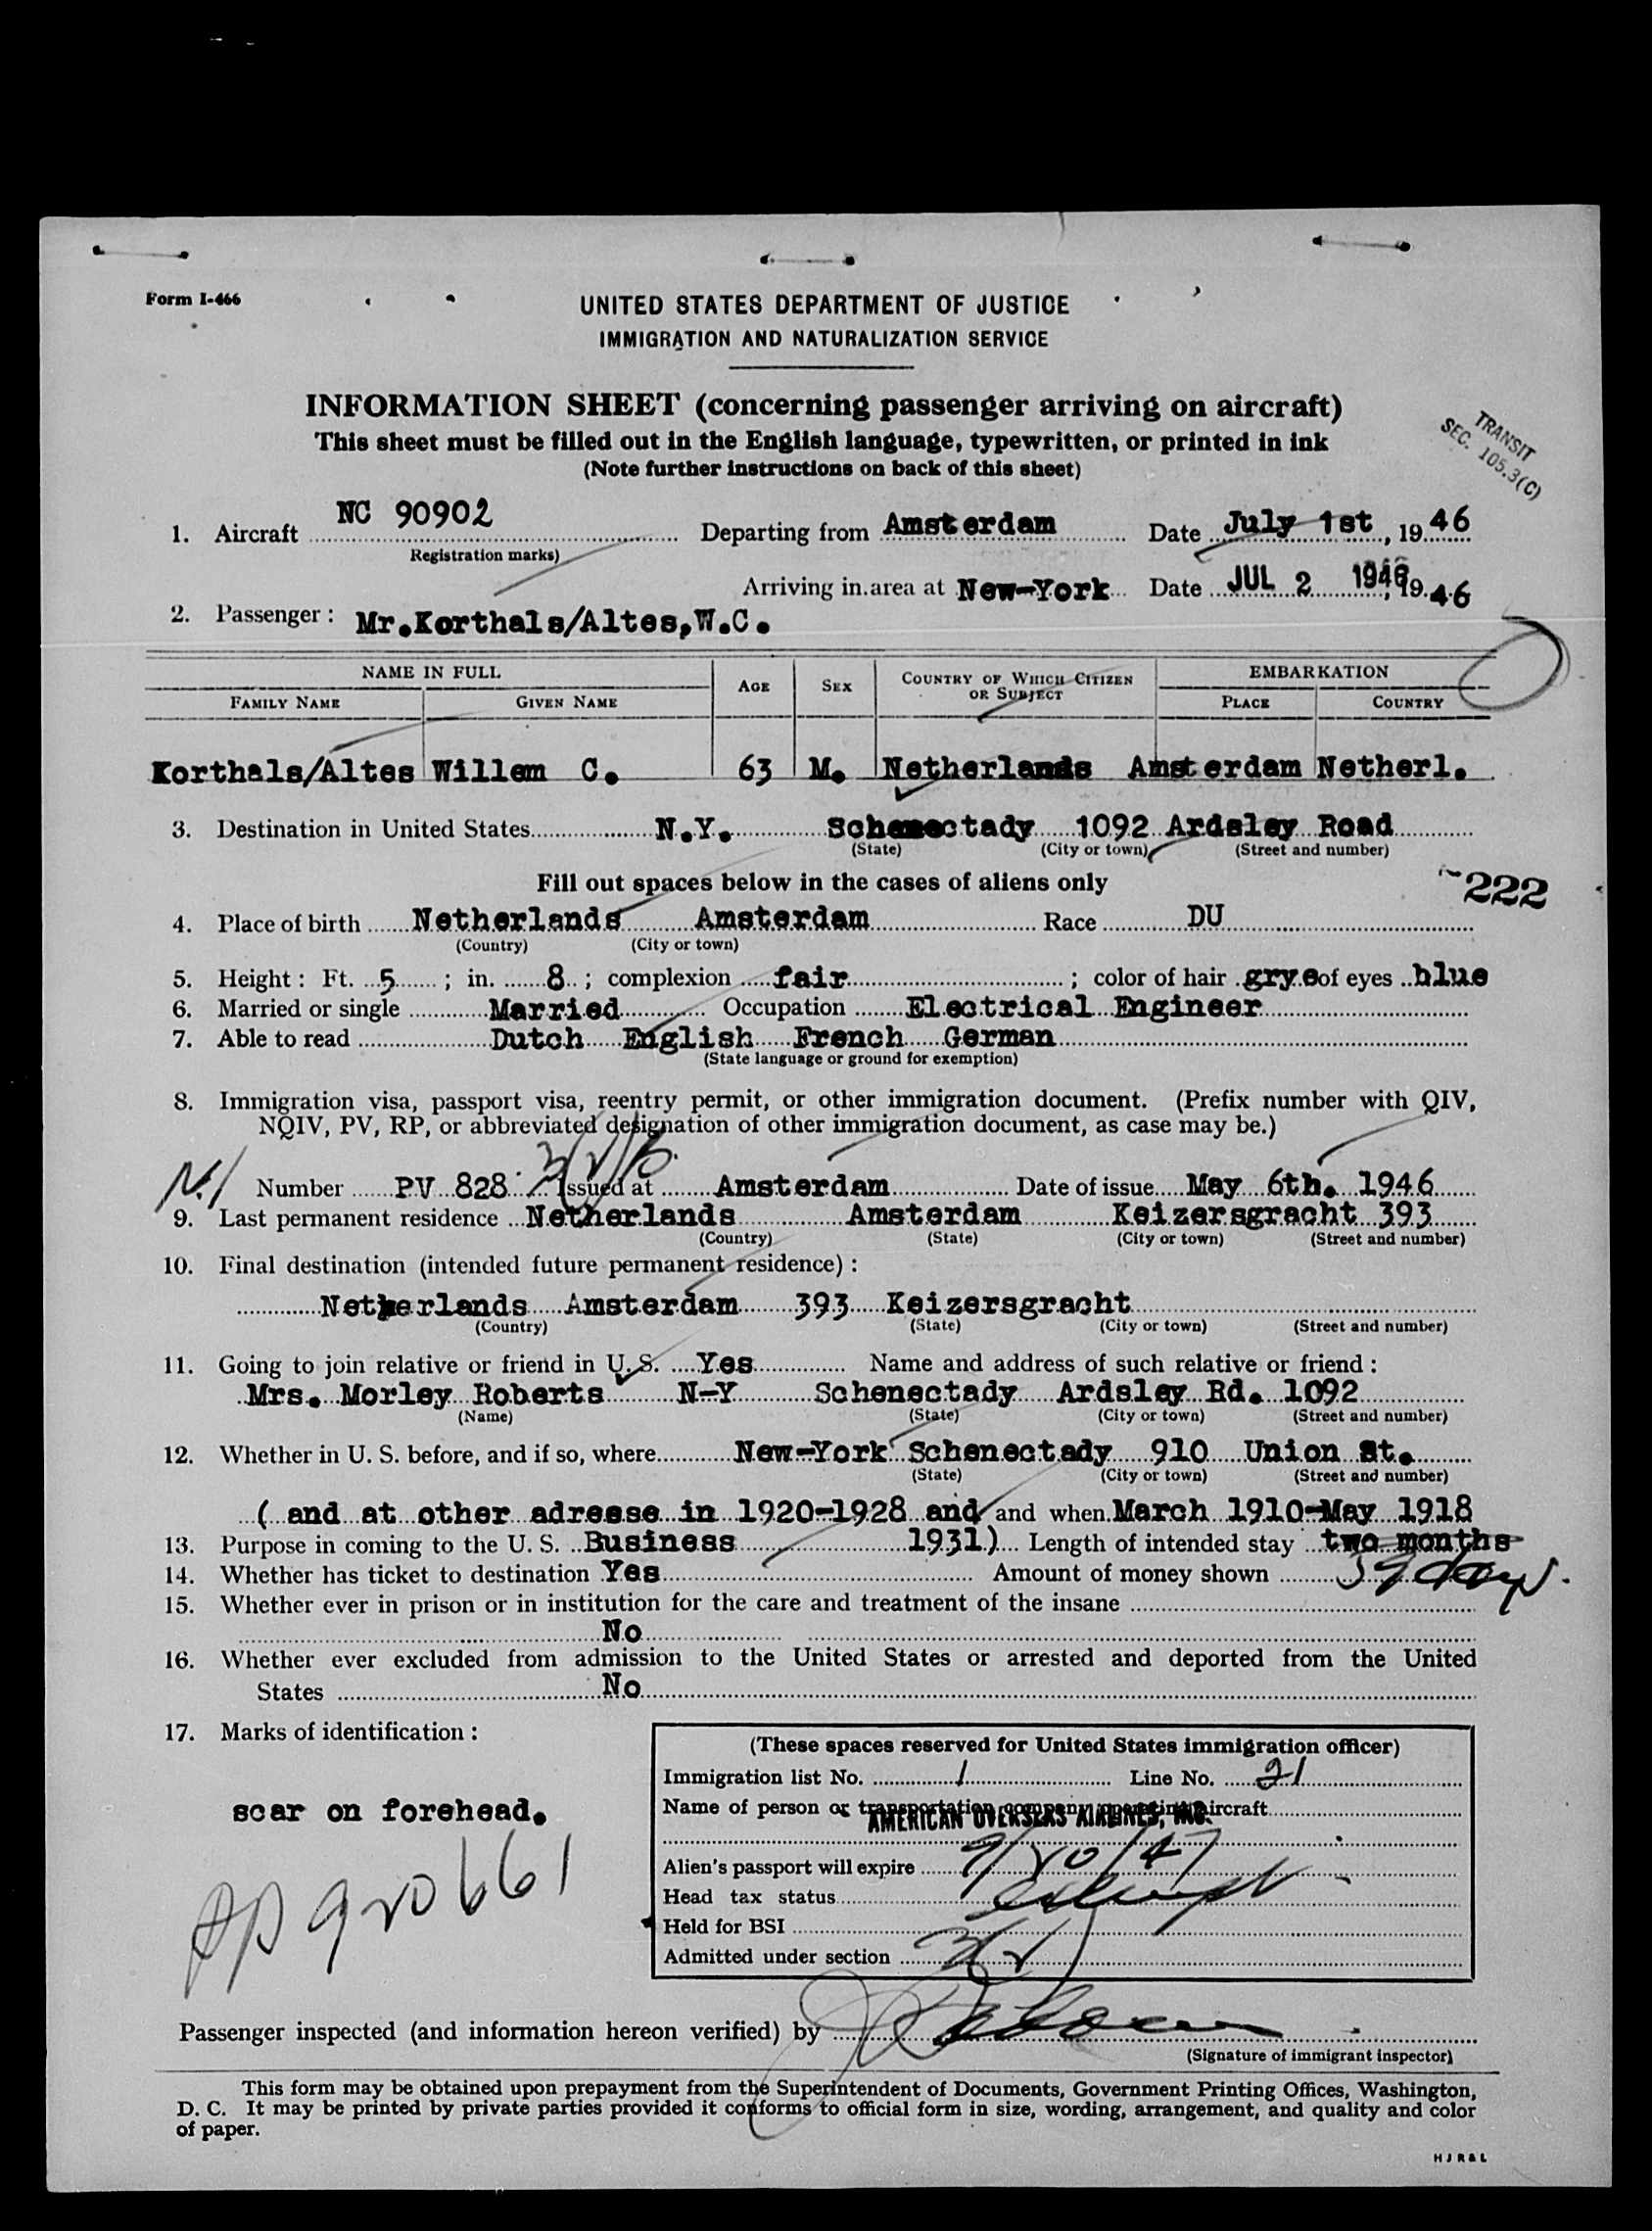 Form I-466
UNITED STATES DEPARTMENT OF JUSTICE
IMMIGRATION AND NATURALIZATION SERVICE
INFORMATION SHEET (concerning passenger arriving on aircraft)
This sheet must be filled out in the English language, typewritten, or printed in ink
(Note further instructions on back of this sheet)
TRANSIT
SEC. 105.3(C)
1. Aircraft NC 90902 Departing from Amsterdam Date July 1st, 1946
Registration marks)
Arriving in area at New-York Date JUL 2 1946, 19 46
2. Passenger : Mr.Korthals/Altes,W.C.
NAME IN FULL AGE SEX COUNTRY OF WHICH CITIZEN OR SUBJECT EMBARKATION
FAMILY NAME GIVEN NAME PLACE COUNTRY
Korthals/Altes Willem C. 63 M. Netherlands Amsterdam Netherl.
3. Destination in United States N.Y. Schenectady 1092 Ardsley Road
(State) (City or town) (Street and number)
Fill out spaces below in the cases of aliens only
222
4. Place of birth Netherlands Amsterdam Race DU
(Country) (City or town)
5. Height : Ft. 5 ; in. 8 ; complexion fair ; color of hair grye of eyes blue
6. Married or single Married Occupation Electrical Engineer
7. Able to read Dutch English French German
(State language or ground for exemption)
8. Immigration visa, passport visa, reentry permit, or other immigration document. (Prefix number with QIV,
NQIV, PV, RP, or abbreviated designation of other immigration document, as case may be.)
Number PV 828 Issued at Amsterdam Date of issue May 6th. 1946
9. Last permanent residence Netherlands Amsterdam Keizersgracht 393
(Country) (State) (City or town) (Street and number)
10. Final destination (intended future permanent residence) :
Netherlands Amsterdam 393 Keizersgracht
(Country) (State) (City or town) (Street and number)
11. Going to join relative or friend in U. S. Yes Name and address of such relative or friend :
Mrs. Morley Roberts N-Y Schenectady Ardsley Rd. 1092
(Name) (State) (City or town) (Street and number)
12. Whether in U. S. before, and if so, where New-York Schenectady 910 Union St.
(State) (City or town) (Street and number)
( and at other adresse in 1920-1928 and and when March 1910-May 1918
13. Purpose in coming to the U. S. Business 1931) Length of intended stay two months
14. Whether has ticket to destination Yes Amount of money shown 59 days.
15. Whether ever in prison or in institution for the care and treatment of the insane
No
16. Whether ever excluded from admission to the United States or arrested and deported from the United
States No
17. Marks of identification :
scar on forehead.
PP 920661
(These spaces reserved for United States immigration officer)
Immigration list No. 1 Line No. 21
Name of person or transportation company operating aircraft
AMERICAN OVERSEAS AIRLINES, INC.
Alien's passport will expire 9/20/47
Head tax status
Held for BSI
Admitted under section 3(2)
Passenger inspected (and information hereon verified) by
(Signature of immigrant inspector)
This form may be obtained upon prepayment from the Superintendent of Documents, Government Printing Offices, Washington,
D. C. It may be printed by private parties provided it conforms to official form in size, wording, arrangement, and quality and color
of paper.
H J R & L